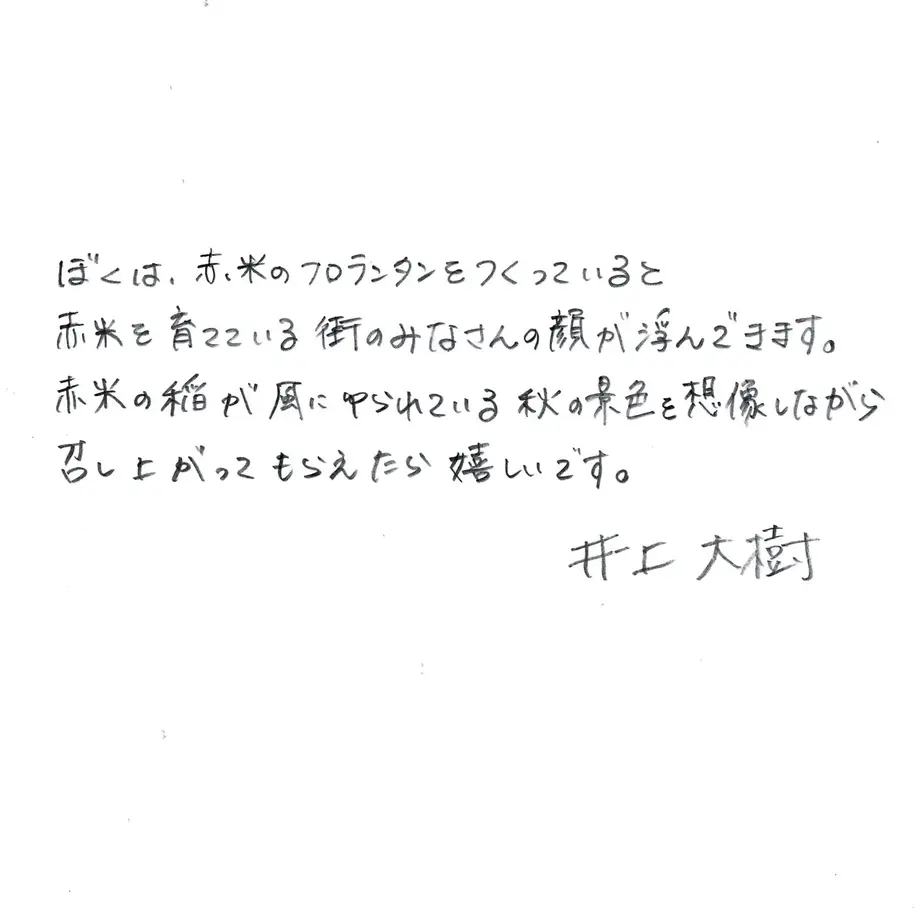 ぼくは、赤米のフロランタンをつくっていると
赤米を育てている街のみなさんの顔が浮んできます。
赤米の稲が風にゆられている秋の景色を想像しながら
召し上がってもらえたら嬉しいです。
井上 大樹